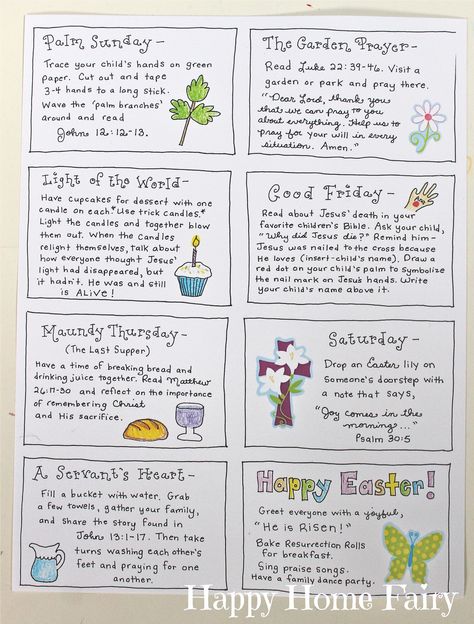 Palm Sunday -
Trace your child's hands on green
paper. Cut out and tape
3-4 hands to a long stick.
Wave the 'palm branches'
around and read
John 12:12-13.
The Garden Prayer -
Read Luke 22:39-46. Visit a
garden or park and pray there.
"Dear Lord, thank you
that we can pray to you
about everything. Help us to
pray for your will in every
situation. Amen."
Light of the World -
Have cupcakes for dessert with one
candle on each. *Use trick candles.*
Light the candles and together blow
them out. When the candles
relight themselves, talk about
how everyone thought Jesus'
light had disappeared, but
it hadn't. He was and still
is ALIVE!
Good Friday -
Read about Jesus' death in your
favorite children's Bible. Ask your child,
"Why did Jesus die?" Remind him -
Jesus was nailed to the cross because
He loves (insert-child's name). Draw a
red dot on your child's palm to symbolize
the nail mark on Jesus's hands. Write
your child's name above it.
Maundy Thursday -
(The Last Supper)
Have a time of breaking bread and
drinking juice together. Read Matthew
26:17-30 and reflect on the importance
of remembering Christ
and His sacrifice.
Saturday -
Drop an Easter lily on
someone's doorstep with
a note that says,
"Joy comes in the
morning..."
Psalm 30:5
A Servant's Heart -
Fill a bucket with water. Grab
a few towels, gather your family,
and share the story found in
John 13:1-17. Then take
turns washing each other's
feet and praying for one
another.
Happy Easter!
Greet everyone with a joyful,
"He is Risen!"
Bake Resurrection Rolls
for breakfast.
Sing praise songs.
Have a family dance party.
Happy Home Fairy